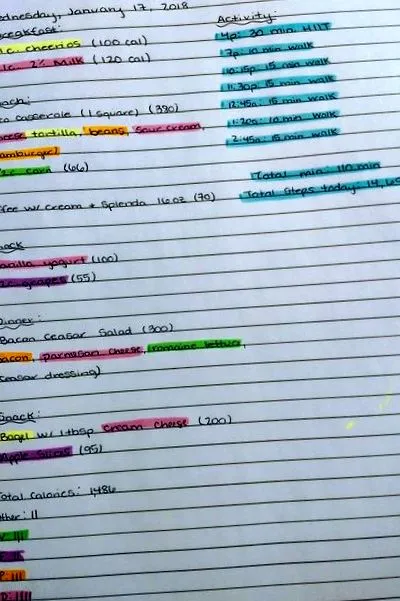 Wednesday, January 17, 2018
Breakfast:
1 c. Cheerios (100 cal)
1 c. 2% Milk (120 cal)
casserole (1 square) (380)
tortilla, beans, sour cream,
hamburger)
corn (66)
coffee w/ cream + Splenda 16 oz (70)
Snack
vanilla yogurt (100)
grapes (55)
Dinner:
Bacon Ceasar Salad (300)
bacon, parmesan cheese, romaine lettuce,
ceasar dressing)
Snack:
Bagel w/ 1 tbsp cream cheese (200)
Apple slices (95)
Total Calories: 1486
Other: II
V: III
F: III
P: III
D: IIII
Activity:
4p: 20 min HIIT
7p: 10 min walk
10:15p: 15 min walk
11:30p: 15 min walk
12:45a: 15 min walk
1:20a: 10 min walk
2:45a: 15 min walk
Total min: 110 min
Total Steps today: 14,